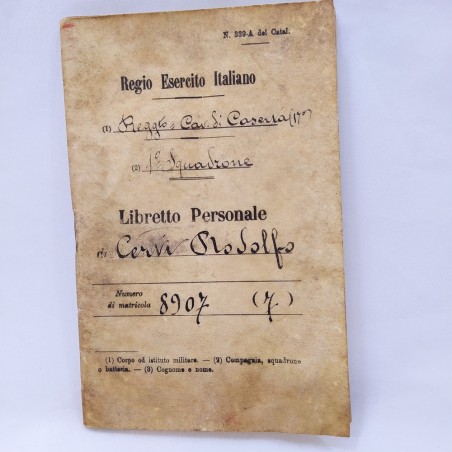 N. 339-A del Catal.
Regio Esercito Italiano
(1) Reggto Cav. di Caserta (17º)
(2) 1º Squadrone
Libretto Personale
(3) Cervi Rodolfo
Numero
di matricola 8907 (7)
(1) Corpo od istituto militare. — (2) Compagnia, squadrone
o batteria. — (3) Cognome e nome.